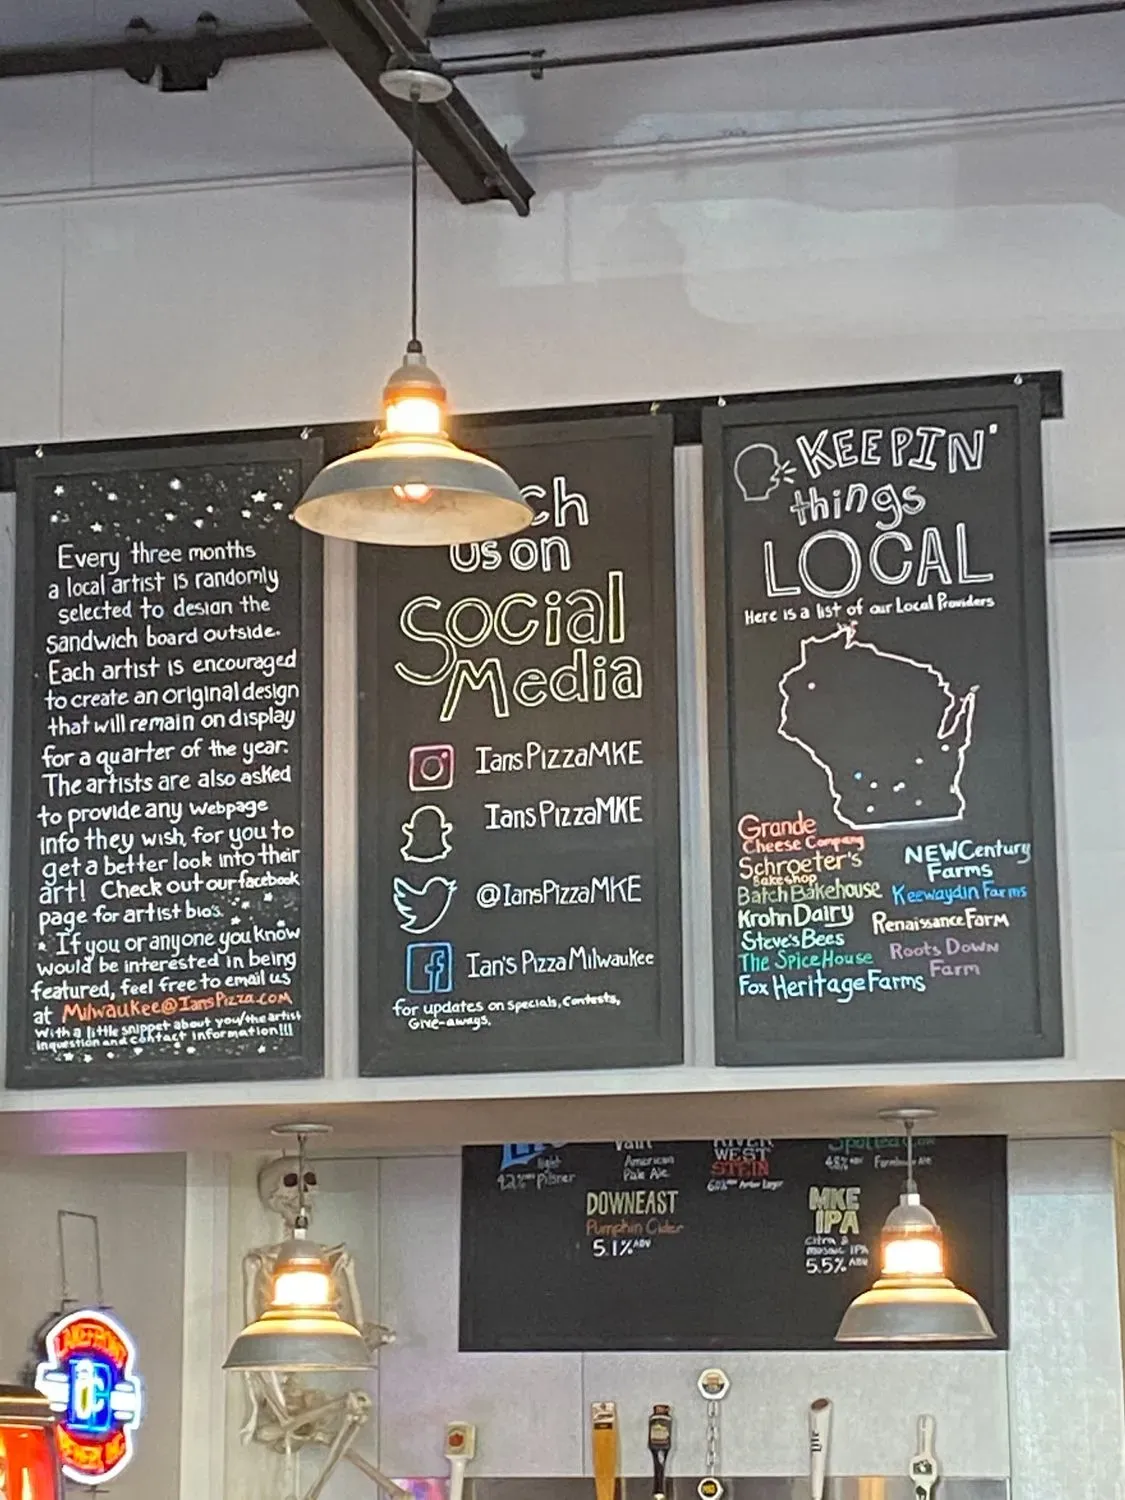 Every three months
a local artist is randomly
selected to design the
sandwich board outside.
Each artist is encouraged
to create an original design
that will remain on display
for a quarter of the year.
The artists are also asked
to provide any webpage
info they wish, for you to
get a better look into their
art! Check out our facebook
page for artist bios.
If you or anyone you know
would be interested in being
featured, feel free to email us
at Milwaukee@IansPizza.com
with a little snippet about you/the artist
in question and contact information!!!
ch
us on
Social
Media
IansPizzaMKE
IansPizzaMKE
@IansPizzaMKE
Ian's Pizza Milwaukee
for updates on specials, contests,
Give-aways.
KEEPIN'
things
LOCAL
Here is a list of our Local Providers
Grande
Cheese Company
Schroeter's
Bakeshop
Batch Bakehouse
Krohn Dairy
Steve's Bees
The Spice House
Fox Heritage Farms
NEW Century
Farms
Keewaydin Farms
Renaissance Farm
Roots Down
Farm
light
4.2% Pilsner
American
Pale Ale
RIVER
WEST
STEIN
Amber Lager
Spotted Cow
4.8% ABV Farmhouse Ale
DOWNEAST
Pumpkin Cider
5.1% ABV
MKE
IPA
Citra &
mosaic IPA
5.5% ABV
LAKEFRONT
BREWERY, INC
Lite